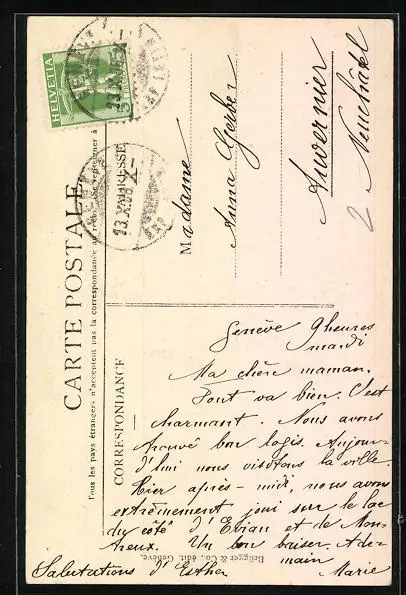 CARTE POSTALE
Tous les pays étrangers n'acceptent pas la correspondance au recto. (Se renseigner à
CORRESPONDANCE
ADRESSE
HELVETIA
5
13.X.08.X-
Madame
Anna Gerber
Auvernier
Neuchâtel
2
Genève 9 heures
mardi
Ma chère maman.
Tout va bien. C'est
charmant. Nous avons
trouvé bon logis. Aujour-
d'hui nous visitons la ville.
Hier après-midi, nous avons
extrêmement joui sur le lac
du côté d'Evian et de Mon-
treux. Un bon baiser. A de-
main
Marie
Salutations d'Esther
Brügger & Co., édit. Genève.